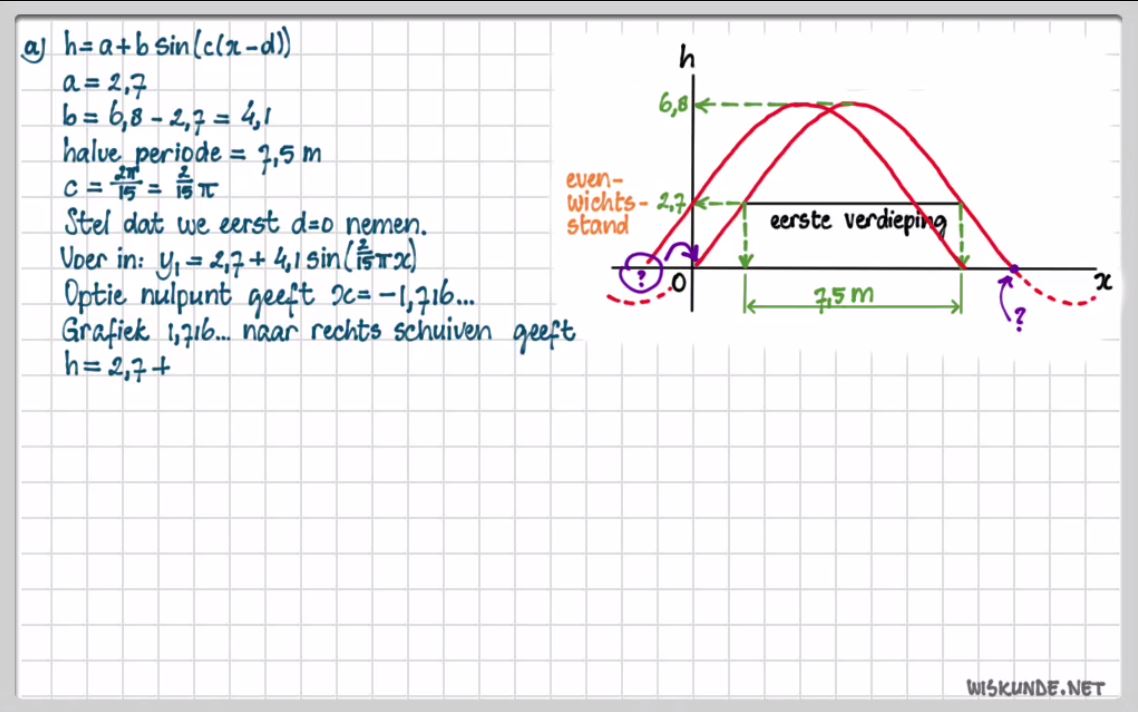 a) h = a + b sin(c(x-d))
a = 2,7
b = 6,8 - 2,7 = 4,1
halve periode = 7,5 m
c = 2π/15 = 2/15 π
Stel dat we eerst d=0 nemen.
Voer in: y₁ = 2,7 + 4,1 sin(2/15 πx)
Optie nulpunt geeft x = -1,716...
Grafiek 1,716... naar rechts schuiven geeft
h = 2,7 +
h
6,8
even-
wichts- 2,7
stand
eerste verdieping
?
0
x
7,5 m
?
WISKUNDE.NET